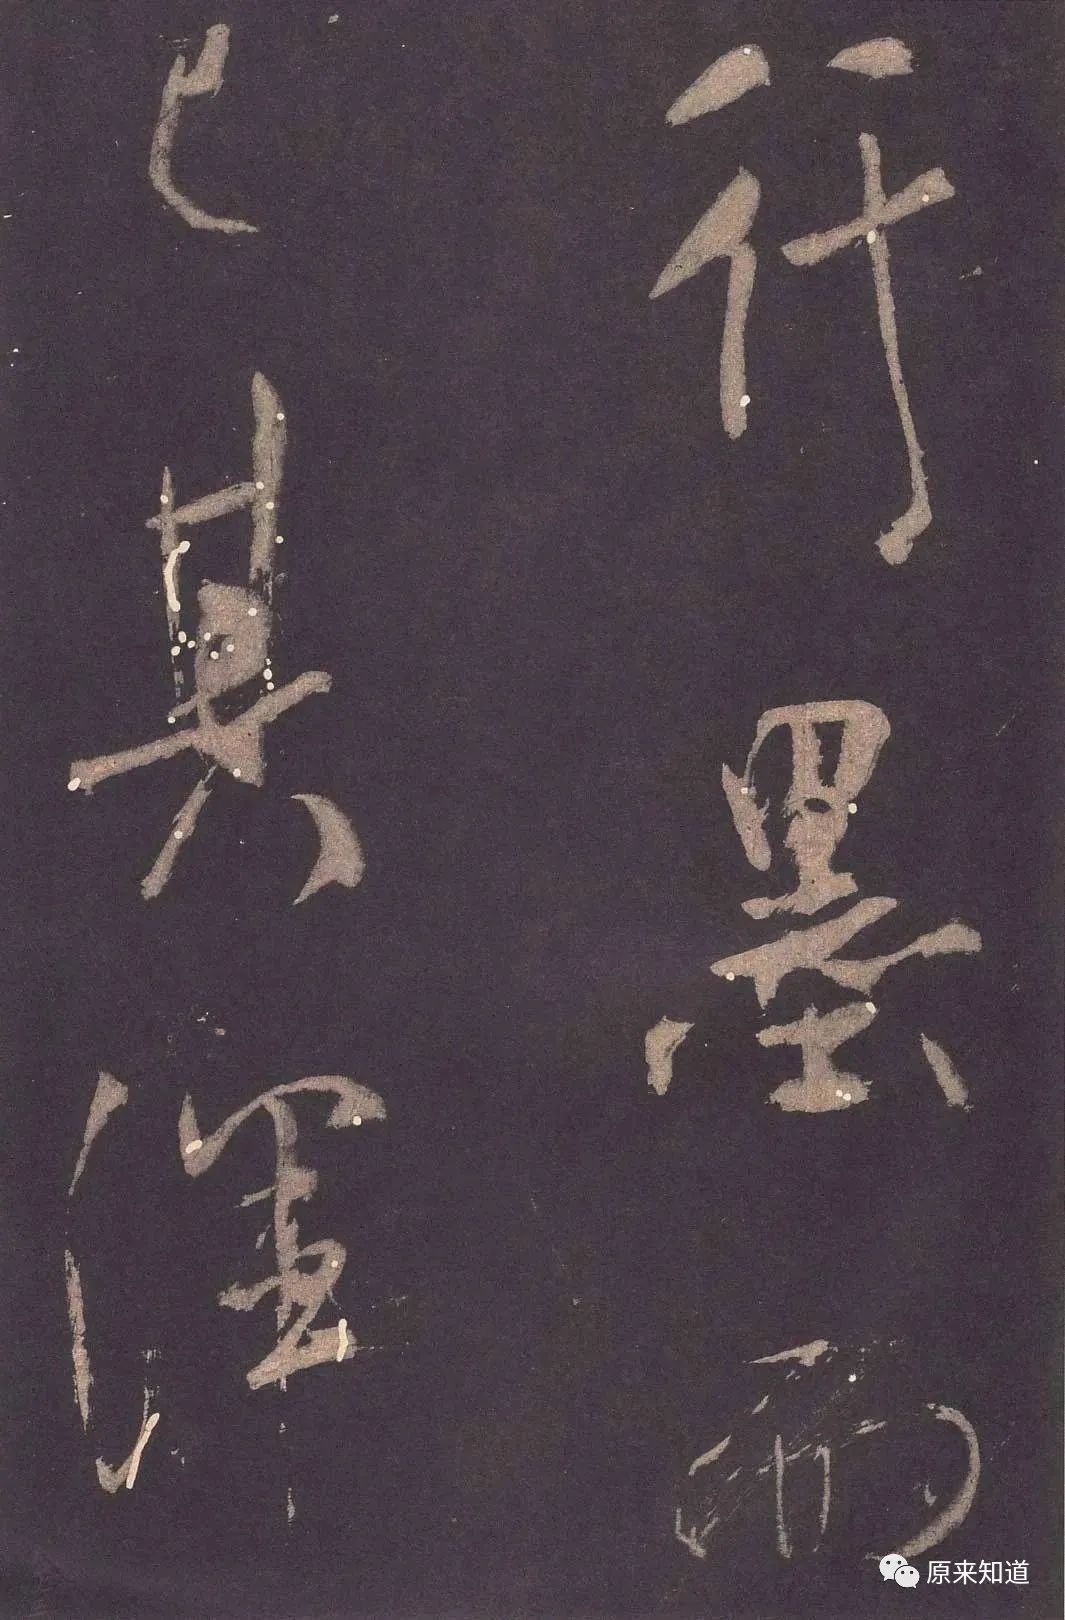 行墨而
已其渾
原来知道